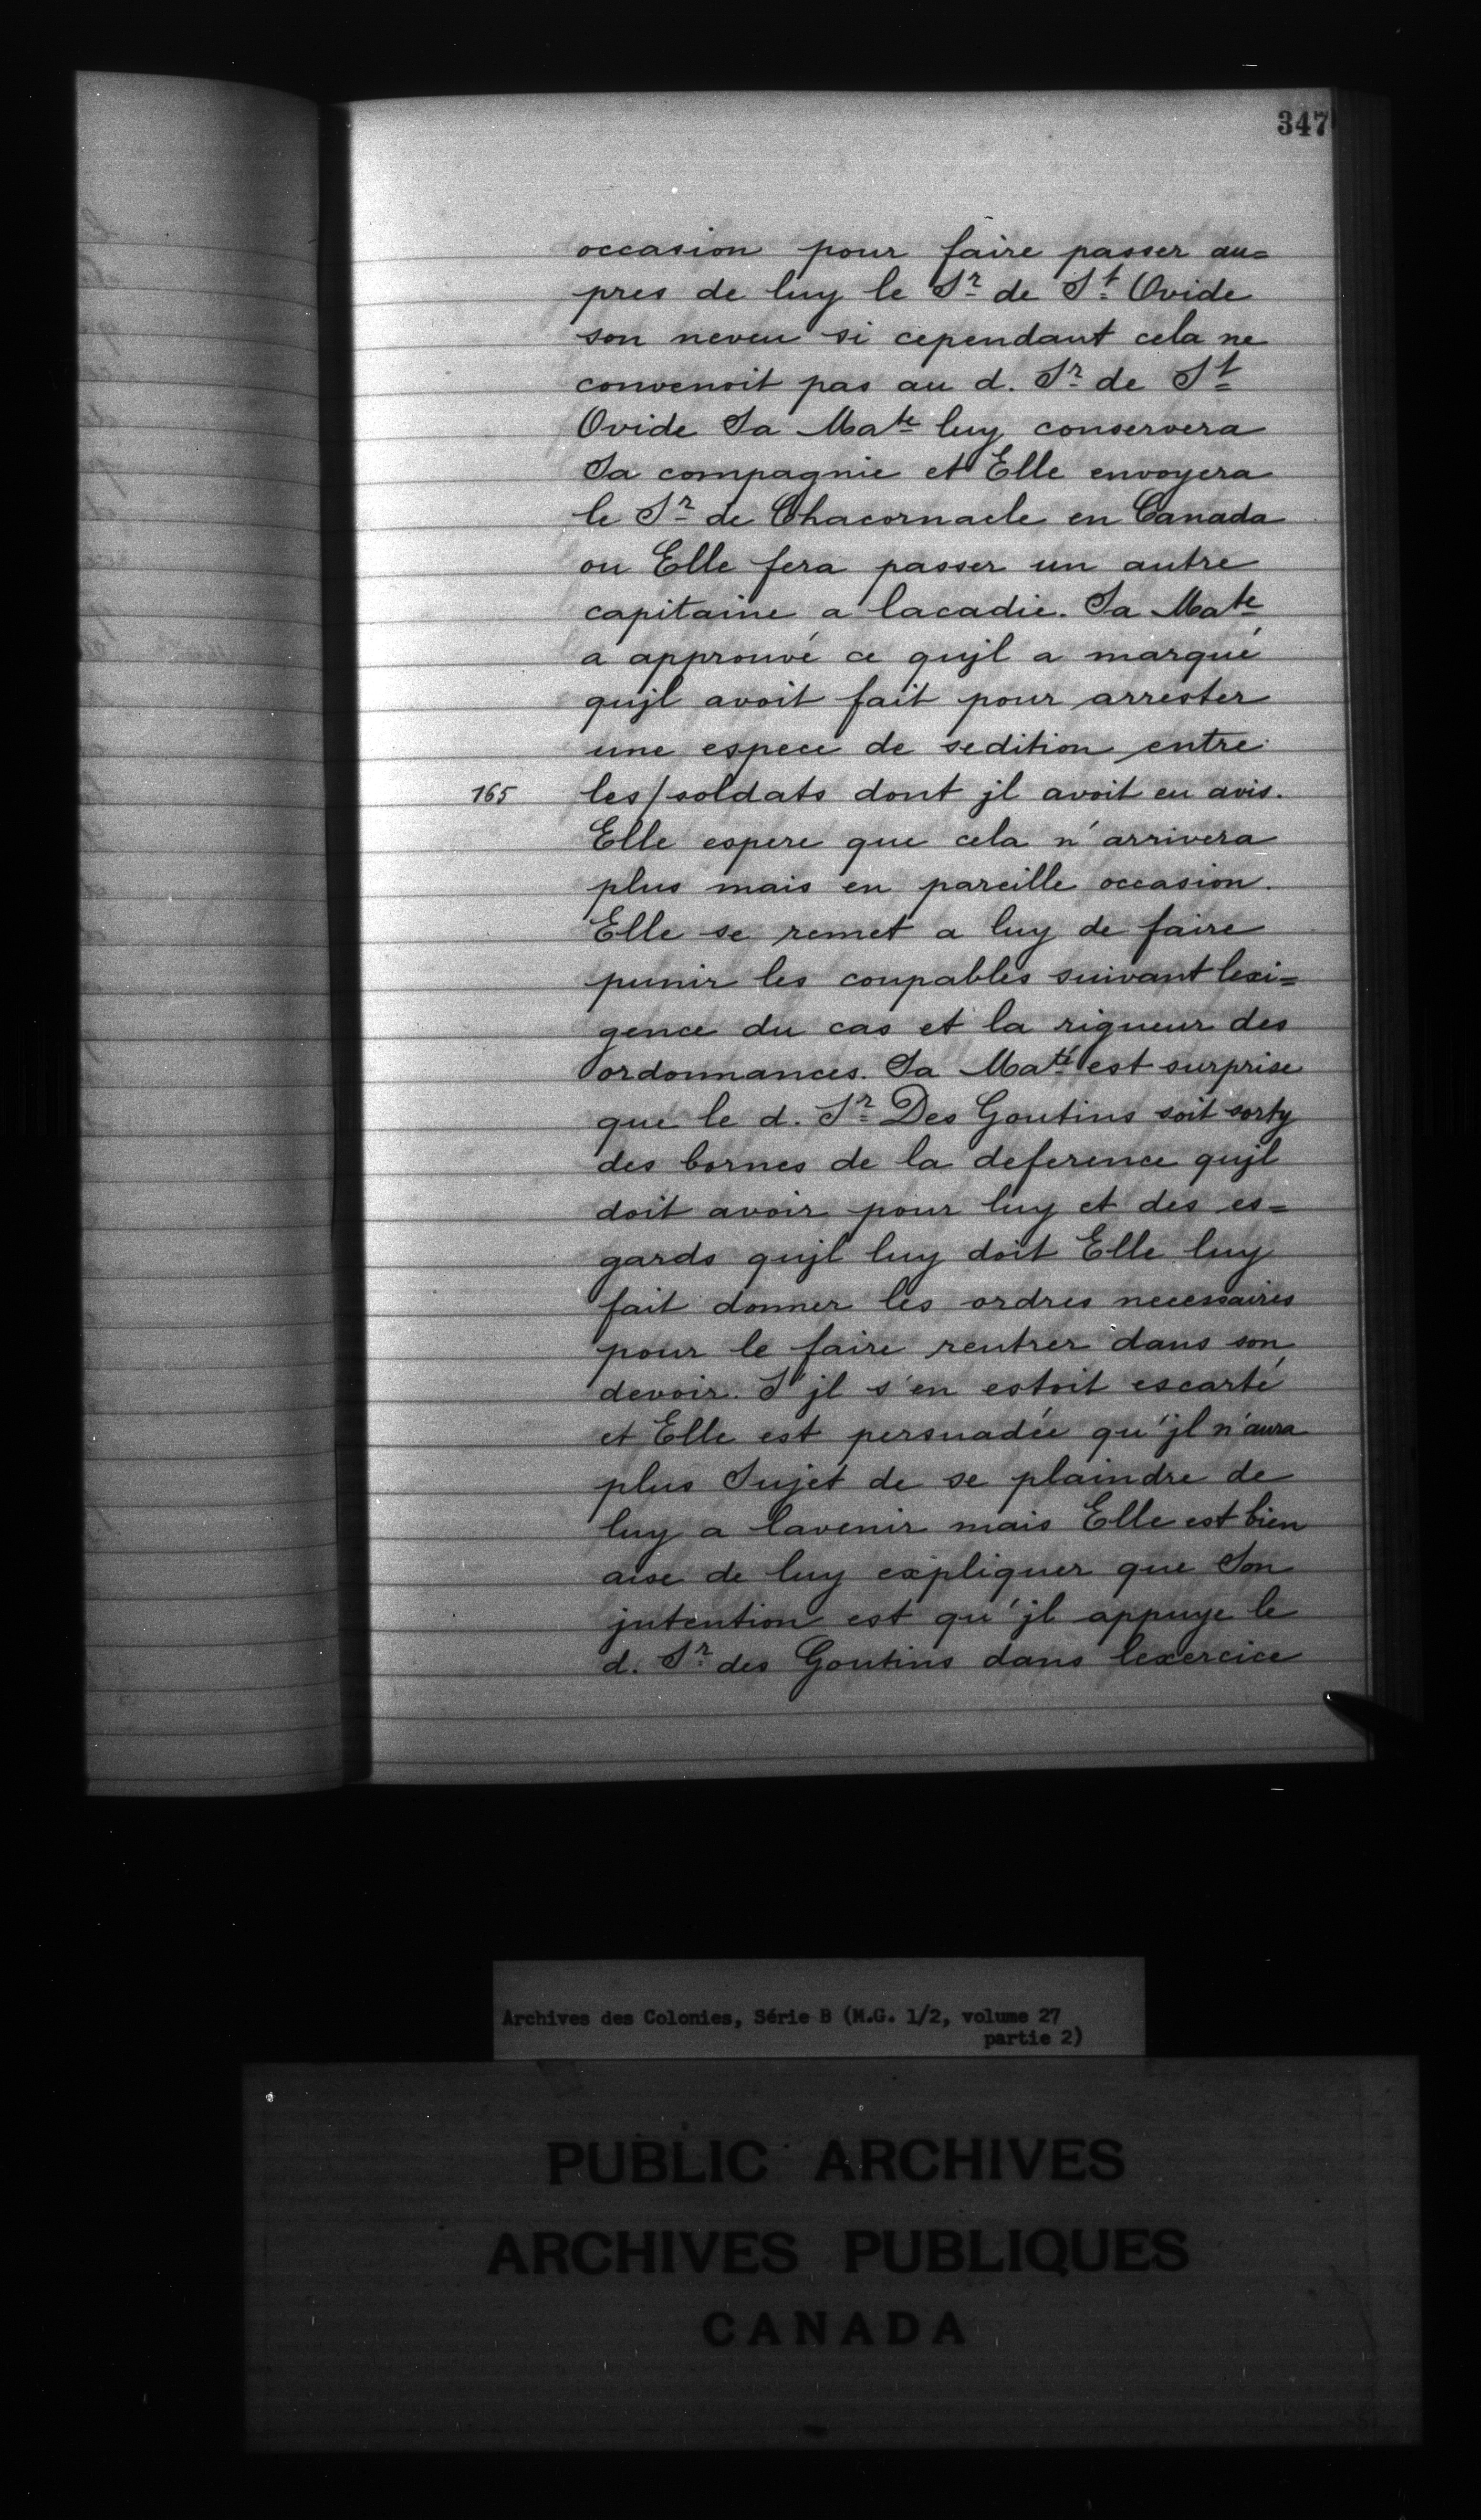 347
occasion pour faire passer au=
pres de luy le Sr de St Ovide
son neveu si cependant cela ne
convenoit pas au d. Sr de St
Ovide Sa Mate luy conservera
Sa compagnie et Elle envoyera
le Sr de Chacornacle en Canada
ou Elle fera passer un autre
capitaine a lacadie. Sa Mate
a approuvé ce qujl a marqué
qujl avoit fait pour arrester
une espece de sedition entre
165 les/soldats dont jl avoit eu avis.
Elle espere que cela n'arrivera
plus mais en pareille occasion.
Elle se remet a luy de faire
punir les coupables suivant lexi=
gence du cas et la rigueur des
ordonnances. Sa Maté est surprise
que le d. Sr Des Goutins soit sorty
des bornes de la deference qujl
doit avoir pour luy et des es=
gards qujl luy doit Elle luy
fait donner les ordres necessaires
pour le faire rentrer dans son
devoir. S'jl s'en estoit escarté
et Elle est persuadée qu'jl n'aura
plus Sujet de se plaindre de
luy a lavenir mais Elle est bien
aise de luy expliquer que Son
jntention est qu'jl appuye le
d. Sr des Goutins dans lexercice
Archives des Colonies, Série B (M.G. 1/2, volume 27
partie 2)
PUBLIC ARCHIVES
ARCHIVES PUBLIQUES
CANADA